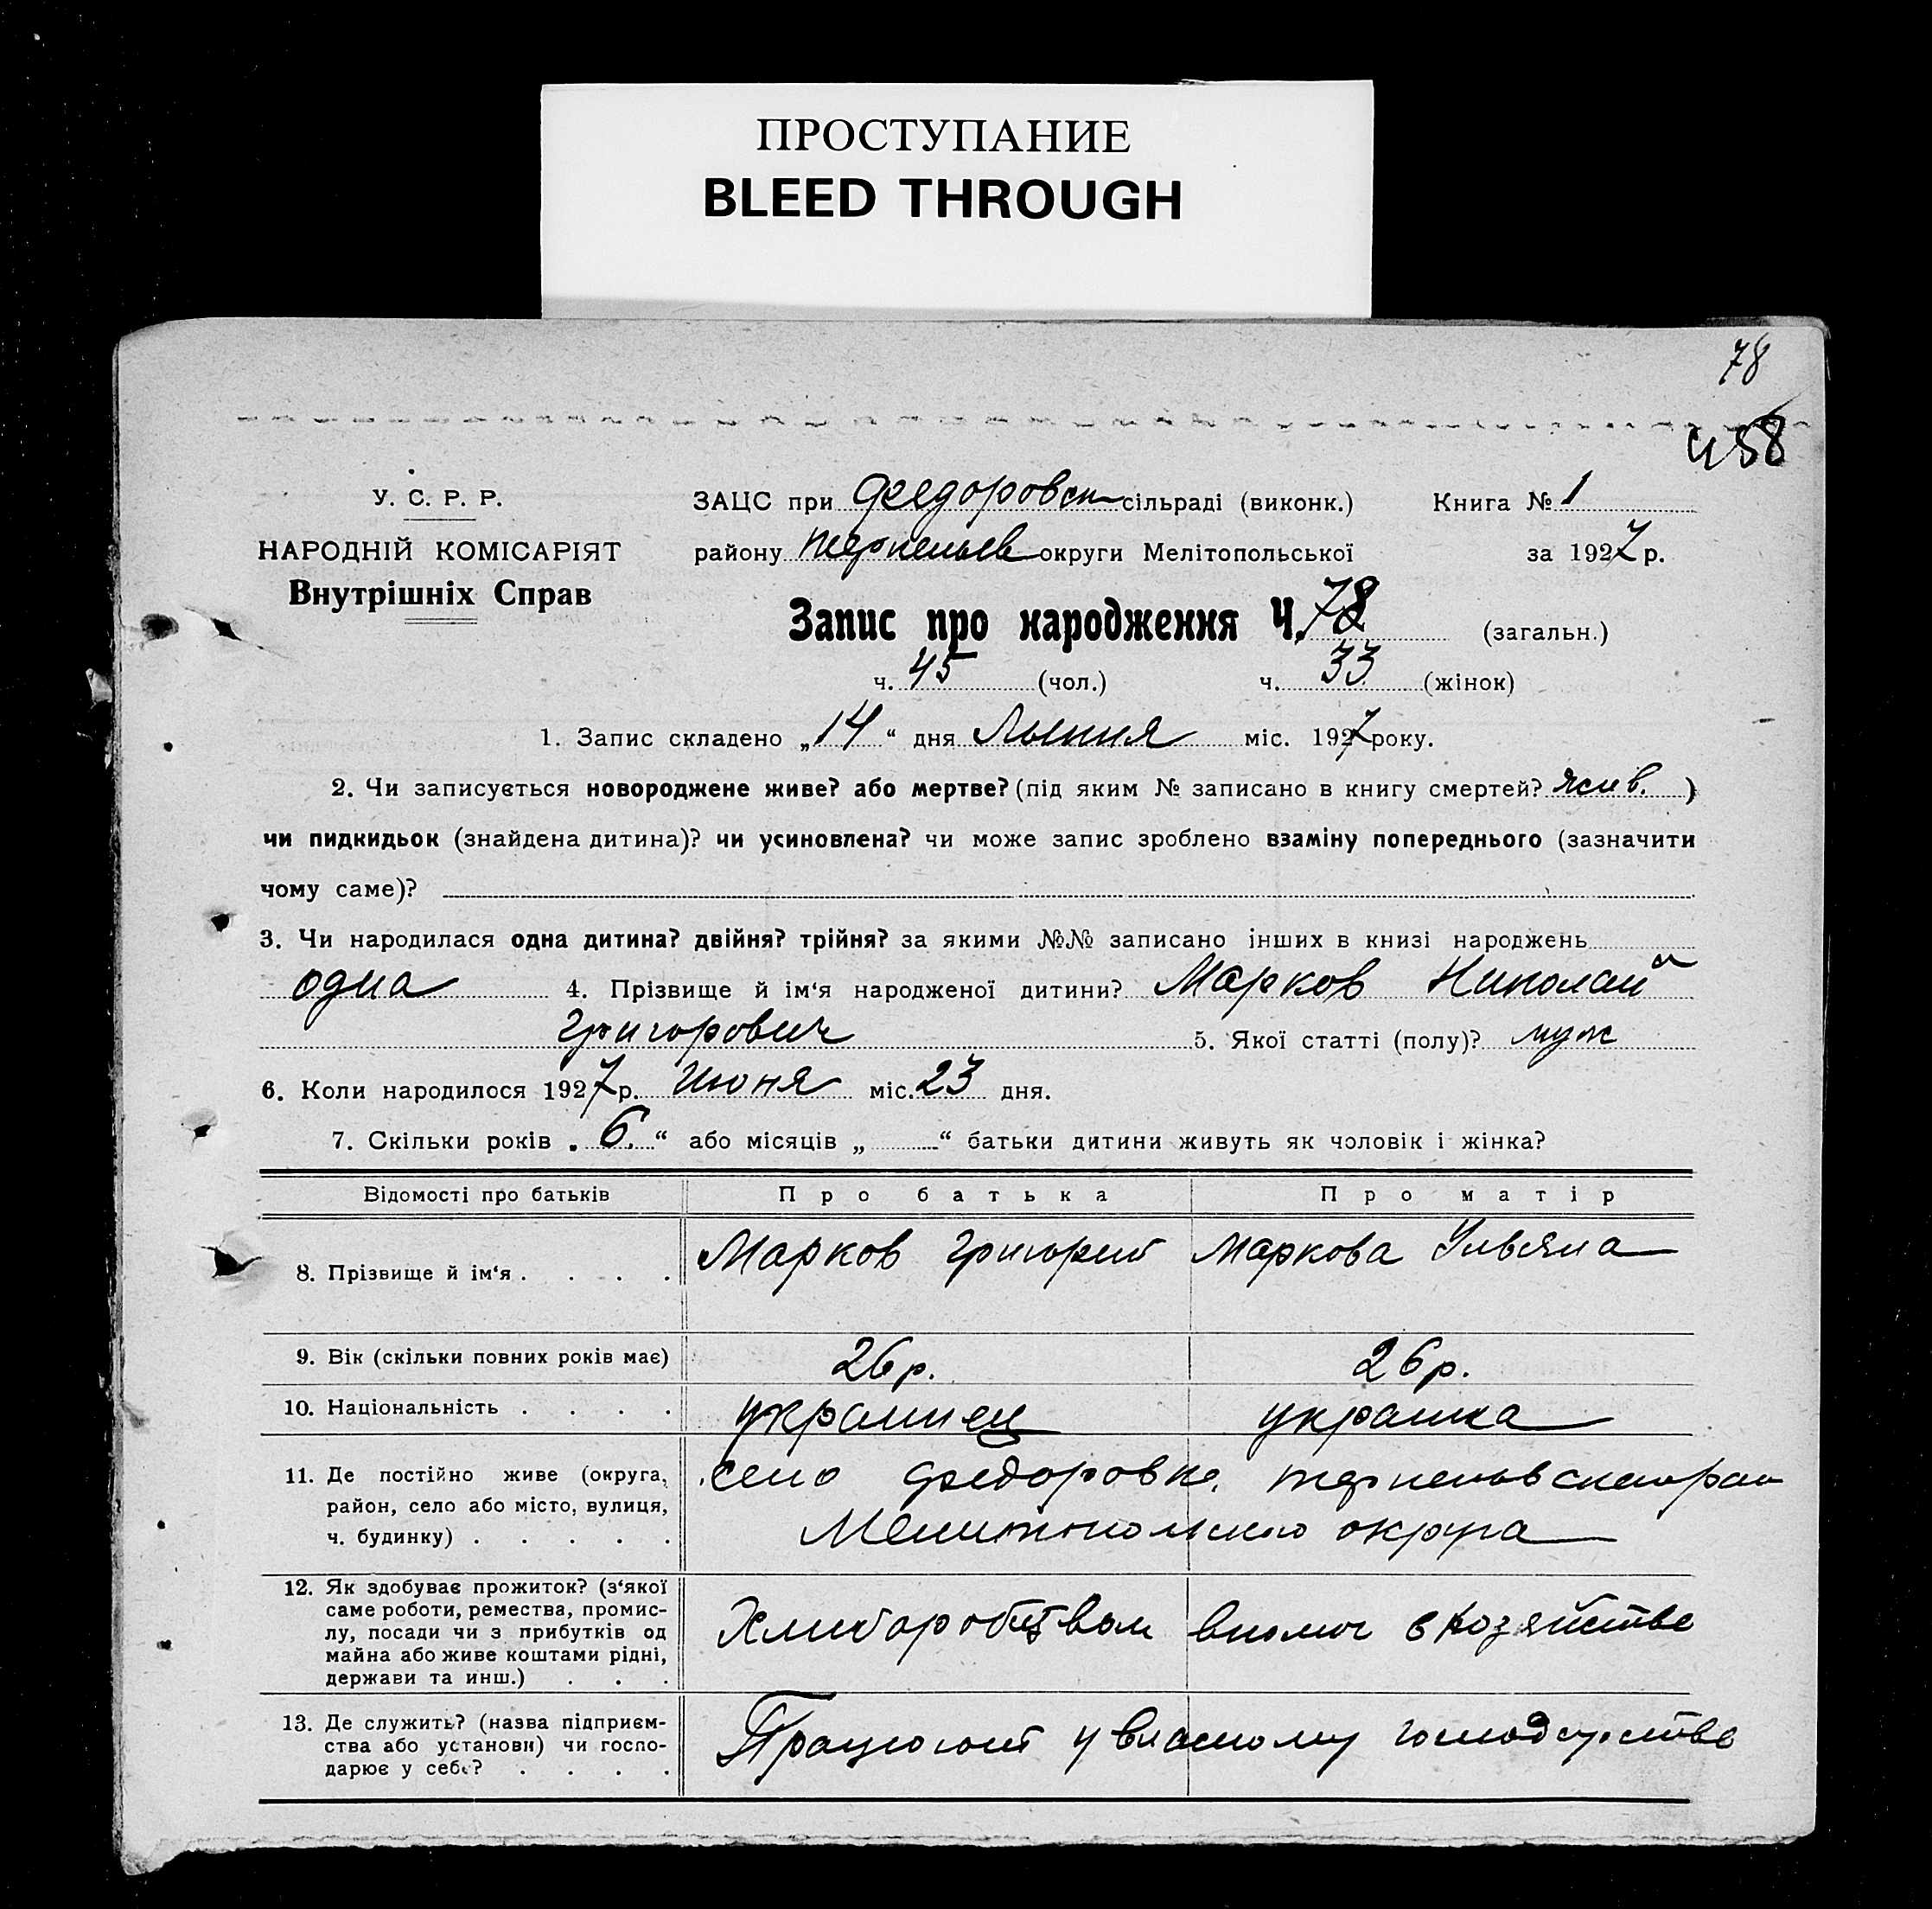 ПРОСТУПАНИЕ
BLEED THROUGH
78
458
У. С. Р. Р.
НАРОДНІЙ КОМІСАРІЯТ
Внутрішніх Справ
ЗАЦС при Федоровск сільраді (виконк.) Книга № 1
району терпеньев округи Мелітопольської за 1927 р.
Запис про народження Ч. 78 (загальн.)
ч. 45 (чол.) ч. 33 (жінок)
1. Запис складено „14“ дня Липня міс. 1927 року.
2. Чи записується новороджене живе? або мертве? (під яким № записано в книгу смертей? жив. )
чи пидкидьок (знайдена дитина)? чи усиновлена? чи може запис зроблено взаміну попереднього (зазначити
чому саме)?
3. Чи народилася одна дитина? двійня? трійня? за якими №№ записано інших в книзі народжень
одна 4. Прізвище й ім‘я народженої дитини? Марков Николай
Григорович 5. Якої статті (полу)? муж
6. Коли народилося 1927 р. Июня міс. 23 дня.
7. Скільки років „6.“ або місяців „ “ батьки дитини живуть як чоловік і жінка?
Відомості про батьків Про батька Про матір
8. Прізвище й ім‘я . . . . Марков Григорий Маркова Ульяна
9. Вік (скільки повних років має) 26 р. 26 р.
10. Національність . . . . украинец украинка
11. Де постійно живе (округа, район, село або місто, вулиця, ч. будинку) . . . . .
село Федоровка,
округа
12. Як здобуває прожиток? (з‘якої саме роботи, ремества, промислу, посади чи з прибутків од майна або живе коштами рідні, держави та инш.) . . .
Хлиборобством в хозяйстве
13. Де служить? (назва підприємства або установи) чи господарює у себе? . . . .
Працюют у власному господарстве